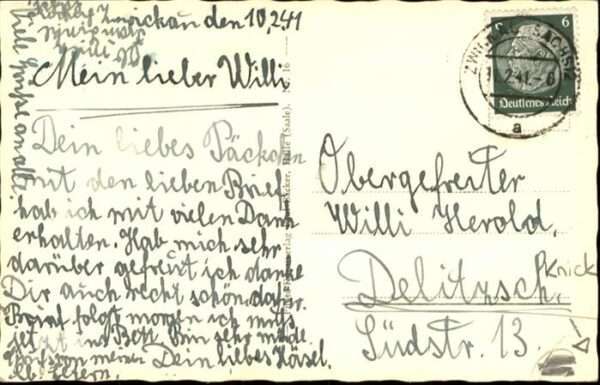 Zwickau den 10.2.41
Viele Grüße an alle
Mein lieber Willi
Dein liebes Päckchen
mit den lieben Brief
hab ich mit vielen Dank
erhalten. Hab mich sehr
darüber gefreut ich danke
Dir auch recht schön dafür.
Brief folgt morgen ich muß
jetzt ins Bett. Bin sehr müde
Dein liebes Häsel.
Grüß von meinen
lb. Eltern.
Halle (Saale).
6
Deutsches Reich
ZWICKAU (SACHS)
2.41.-6
a
Obergefreiter
Willi Herold,
Delitzsch.
Knick
Südstr. 13.